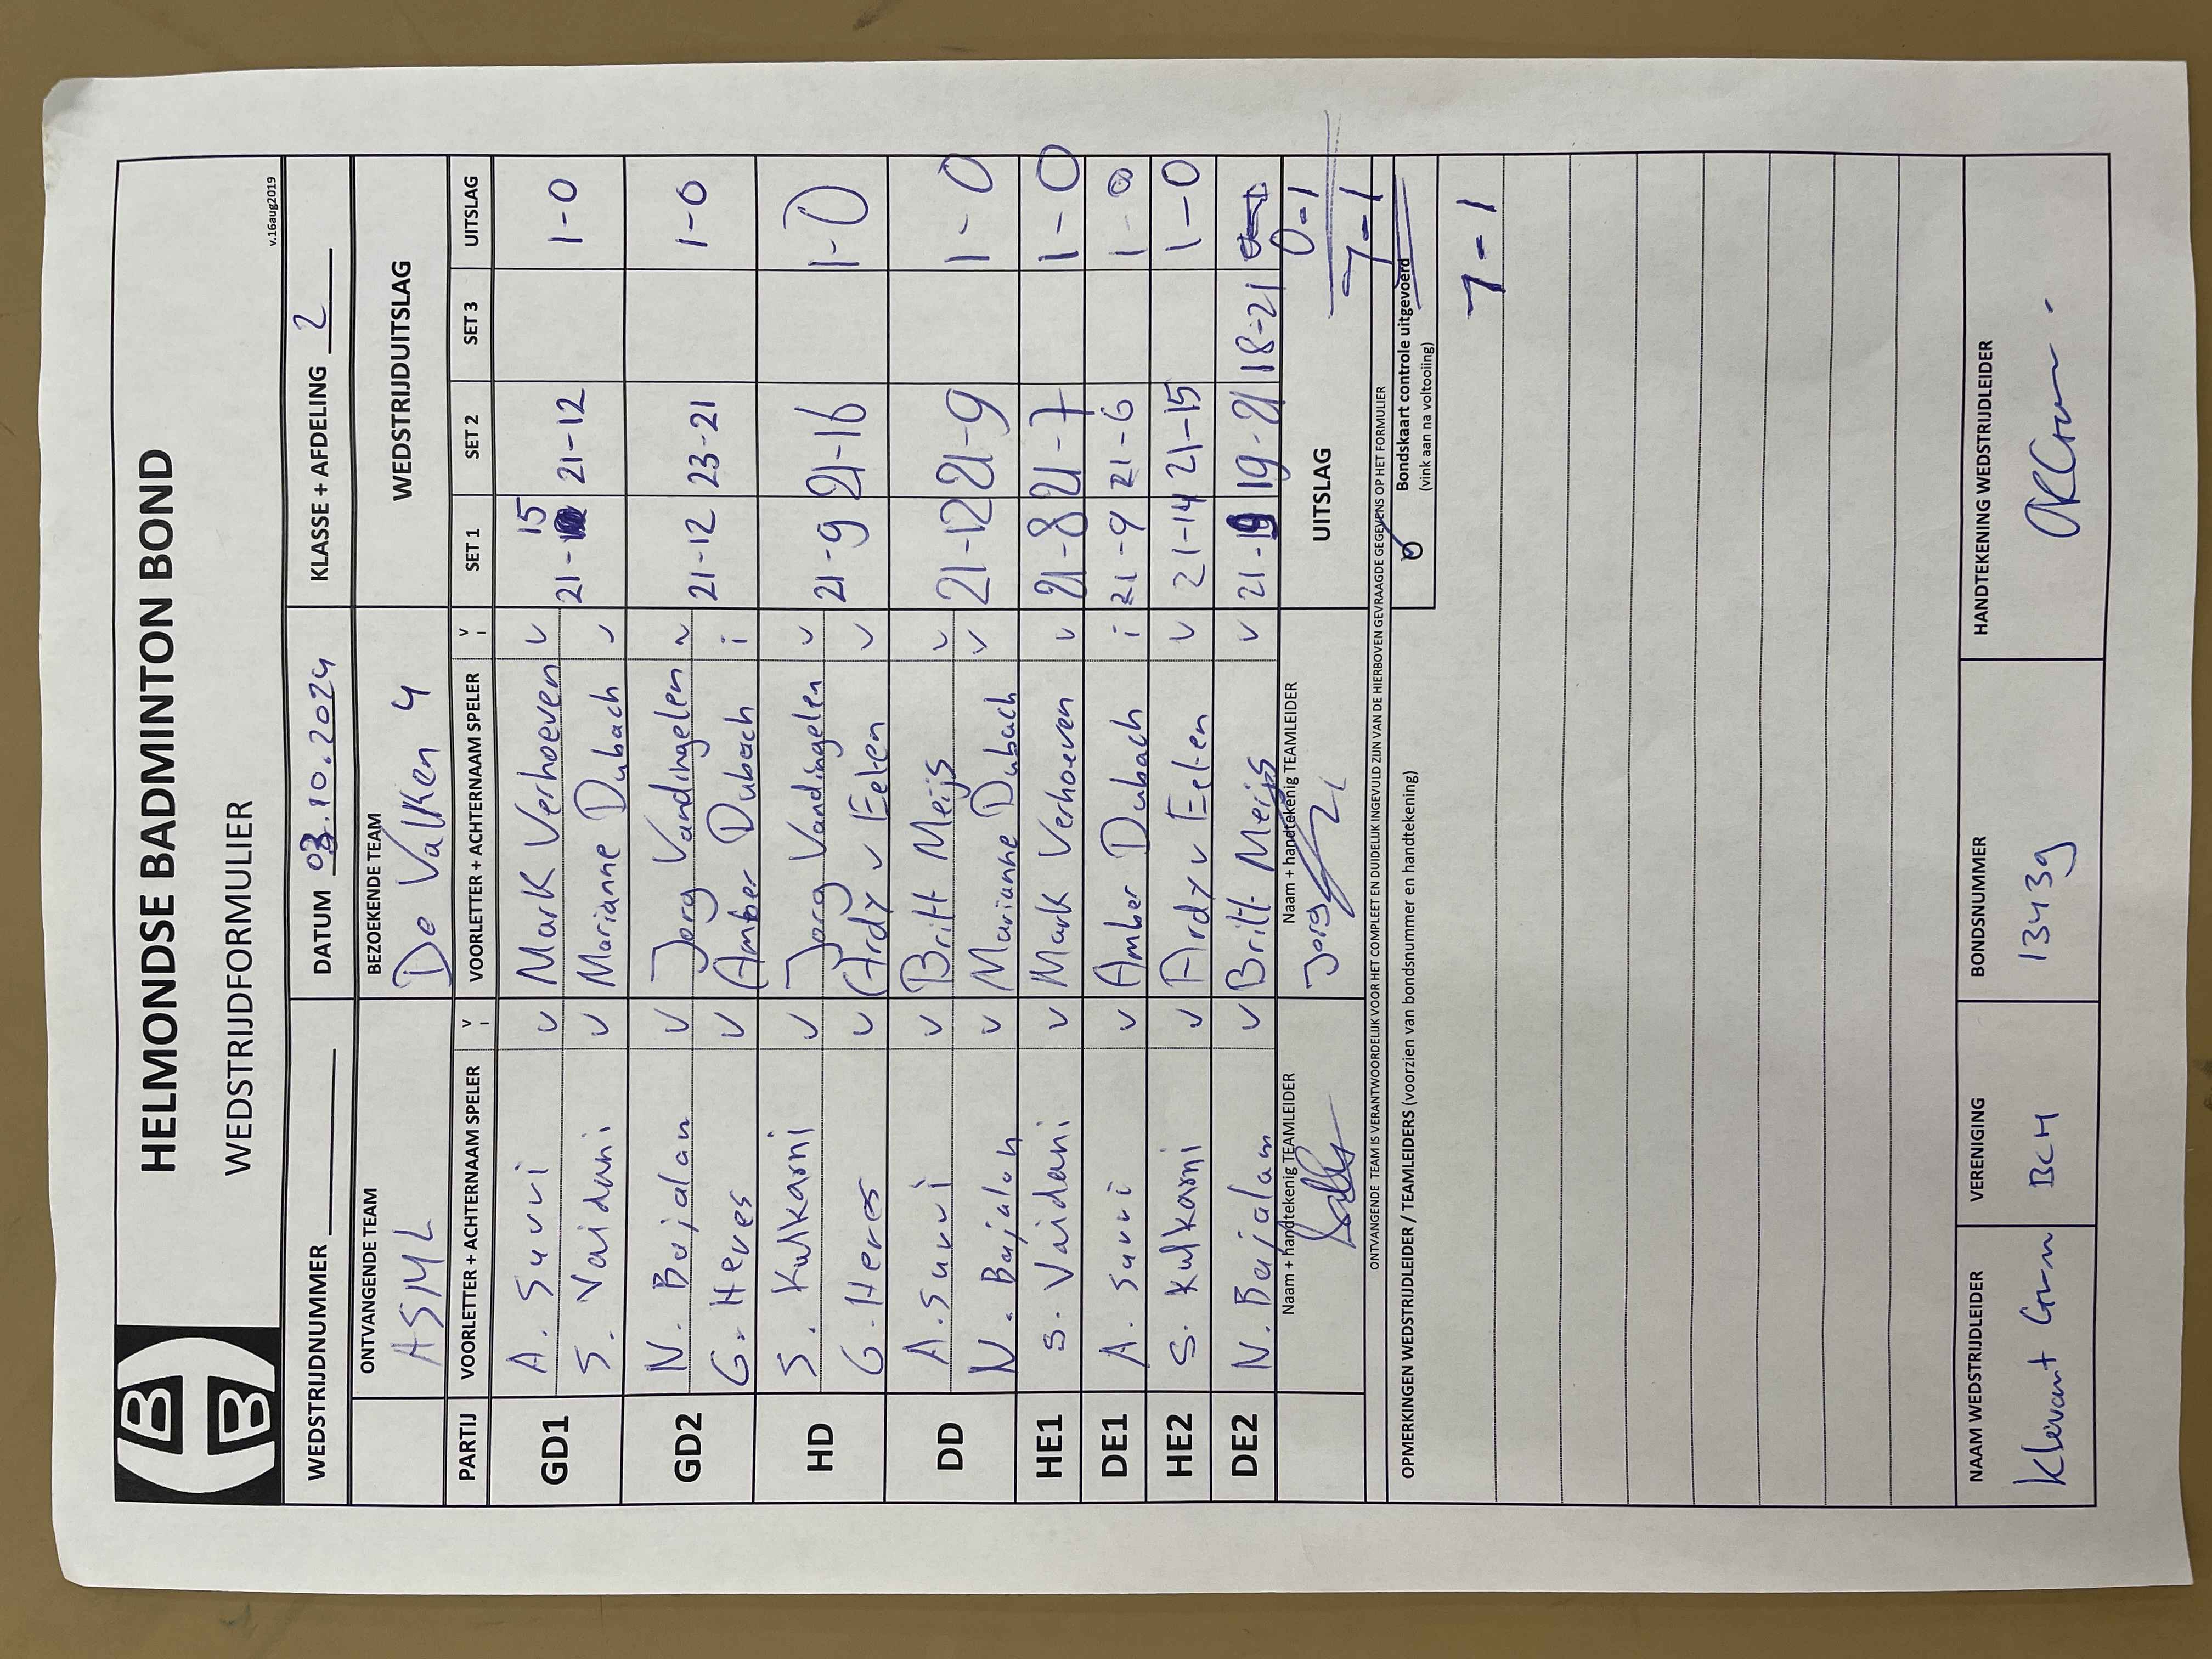 HELMONDSE BADMINTON BOND
WEDSTRIJDFORMULIER
v.16aug2019
WEDSTRIJDNUMMER DATUM 03.10.2024 KLASSE + AFDELING 2
ONTVANGENDE TEAM BEZOEKENDE TEAM WEDSTRIJDUITSLAG
ASML De Valken 4
PARTIJ VOORLETTER + ACHTERNAAM SPELER V I VOORLETTER + ACHTERNAAM SPELER V I SET 1 SET 2 SET 3 UITSLAG
GD1 A. Survi v Mark Verhoeven v 21-15 21-12 1-0
S. Vaidani v Marianne Dubach v
GD2 N. Bajalan v Jorg Vandingelen v 21-12 23-21 1-0
G. Heres v Amber Dubach i
HD S. Kulkarni v Jorg Vandingelen v 21-9 21-16 1-0
G. Heres v Ardy v Eelen v
DD A. Survi v Britt Meijs v 21-12 21-9 1-0
N. Bajalan v Marianne Dubach v
HE1 S. Vaidani v Mark Verhoeven v 21-8 21-7 1-0
DE1 A. Survi v Amber Dubach i 21-9 21-6 1-0
HE2 S. Kulkarni v Ardy v Eelen v 21-14 21-15 1-0
DE2 N. Bajalan v Britt Meijs v 21-19 19-21 18-21 0-1
Naam + handtekenig TEAMLEIDER Naam + handtekenig TEAMLEIDER UITSLAG 7-1
Jorg
ONTVANGENDE TEAM IS VERANTWOORDELIJK VOOR HET COMPLEET EN DUIDELIJK INGEVULD ZIJN VAN DE HIERBOVEN GEVRAAGDE GEGEVENS OP HET FORMULIER
OPMERKINGEN WEDSTRIJDLEIDER / TEAMLEIDERS (voorzien van bondsnummer en handtekening) Bondskaart controle uitgevoerd
(vink aan na voltooiing)
7-1
NAAM WEDSTRIJDLEIDER VERENIGING BONDSNUMMER HANDTEKENING WEDSTRIJDLEIDER
BCH 13439